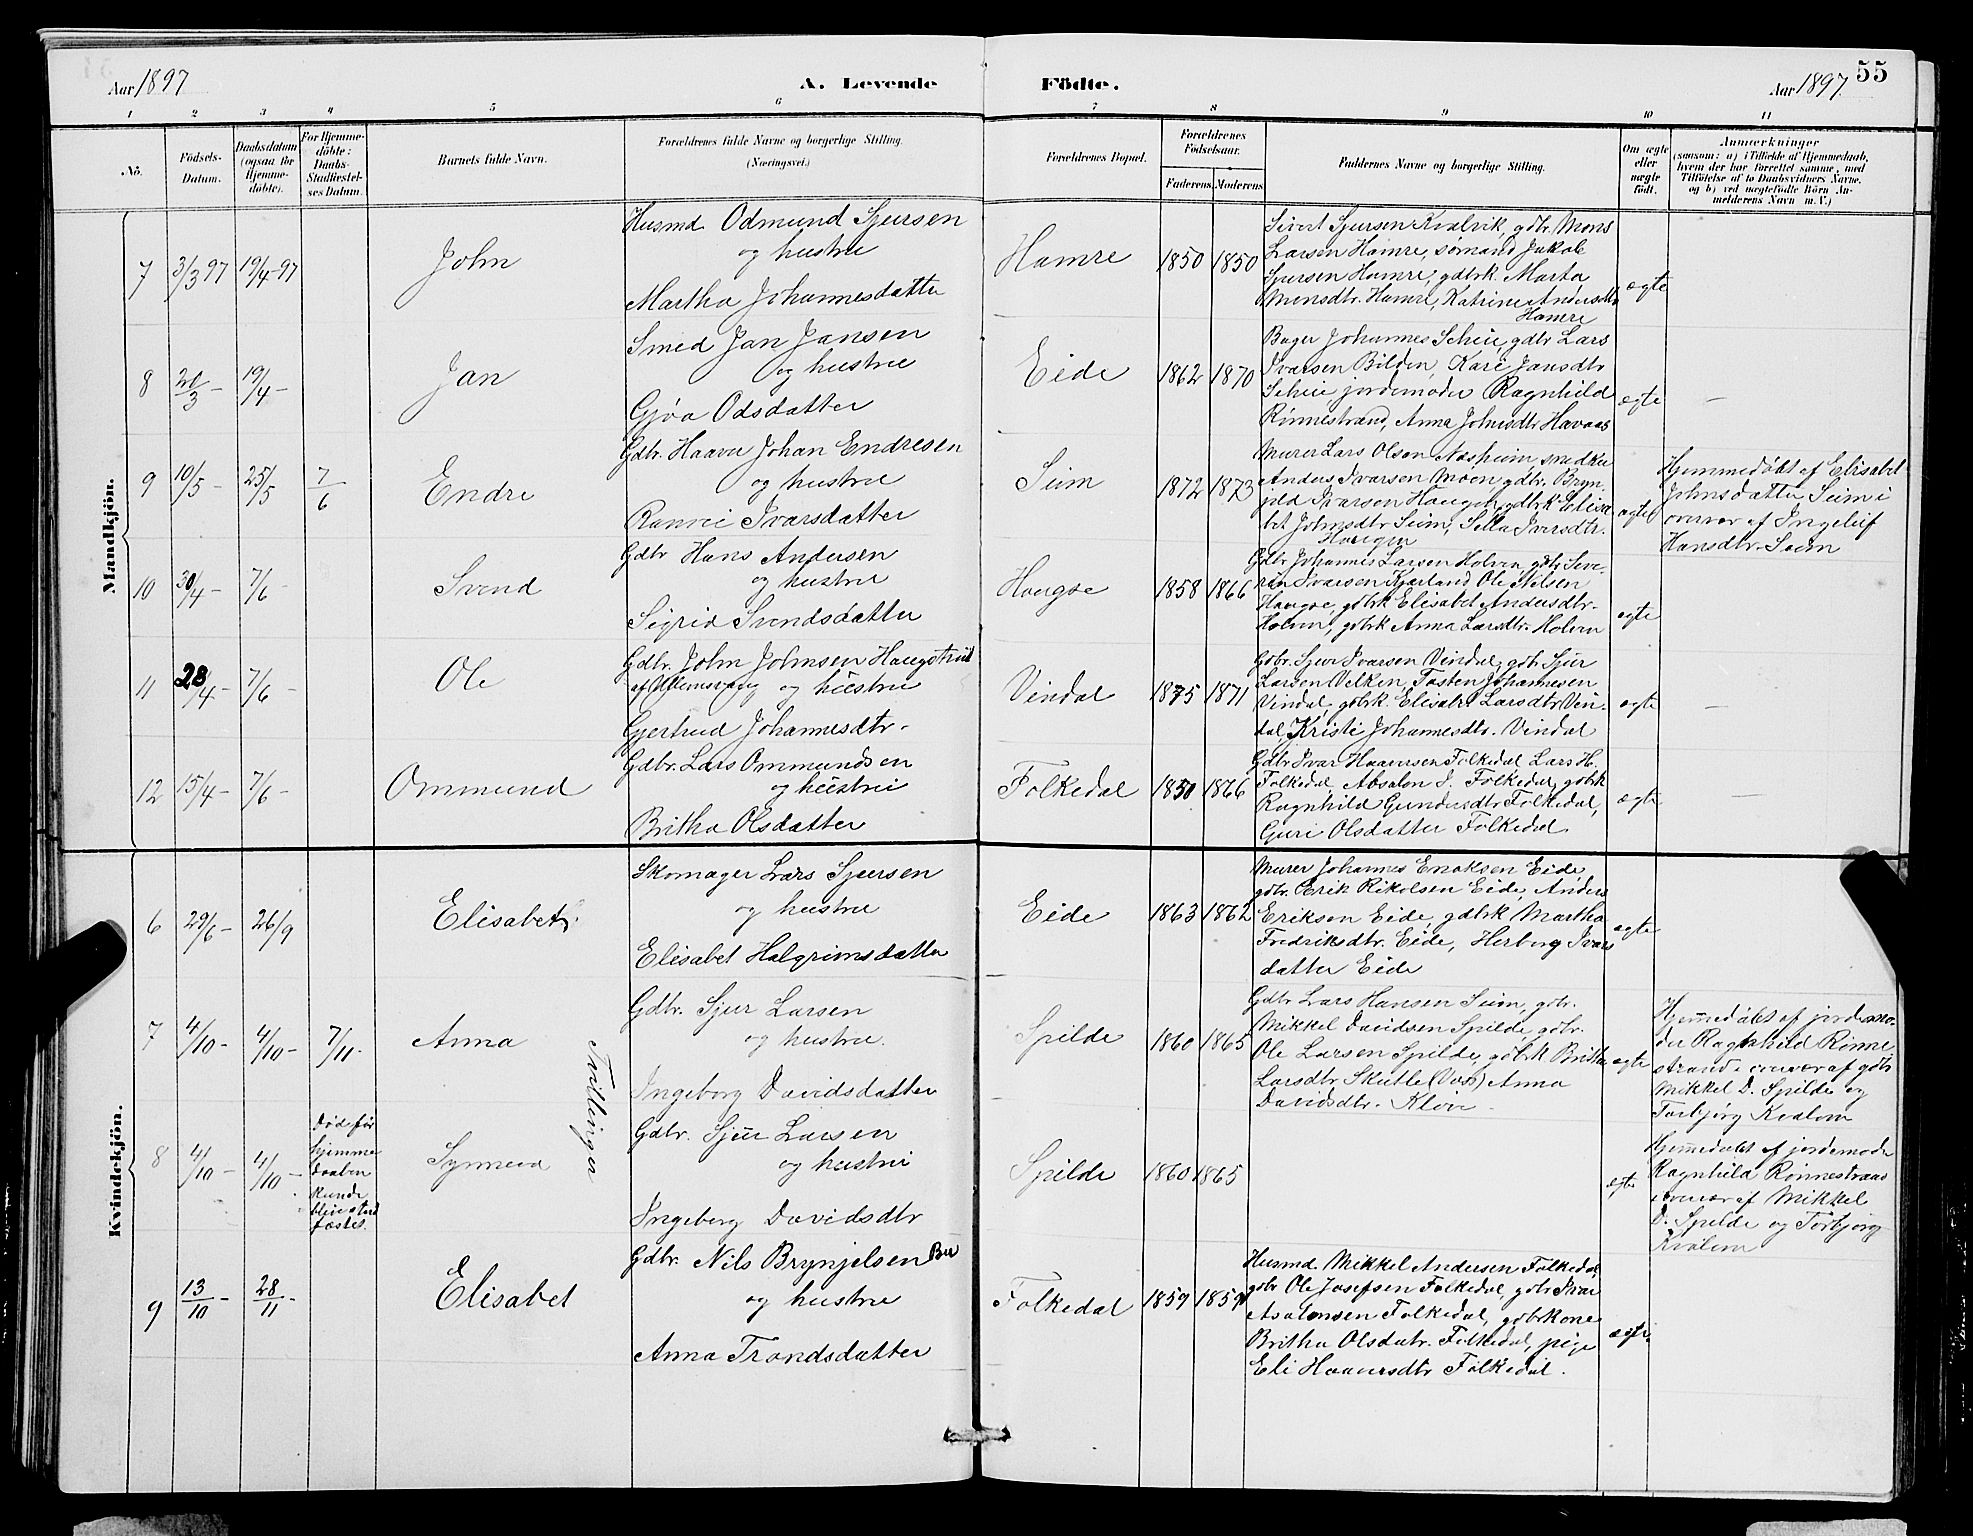 Aar 1897
A. Levende Födte.
Aar 1897.
55
1 2 3 4 5 6 7 8 9 10 11
No.
Födsels-Datum.
Daabsdatum (ogsaa for Hjemmedöbte).
For Hjemmedöbte: Daabs-Stadfæstelses Datum.
Barnets fulde Navn.
Forældrenes fulde Navne og borgerlige Stilling. (Næringsvei.)
Forældrenes Bopæl.
Forældrenes Födselsaar.
Faderens Moderens
Faddernes Navne og borgerlige Stilling.
Om ægte eller uægte født.
Anmærkninger
(saasom: a) i Tilfælde af Hjemmedaab, hvem der har forrettet samme, med Tilföielse af to Daabsvidners Navne, og b) ved uægtefödte Börn Anmelderens Navn m. V.)
Mandkjön.
7 3/3 97 19/4-97
John
Husmd Odmund Sjursen
og hustru
Martha Johannesdatter
Hamre 1850 1850
Sivert Sjursen Kvalvik, gdbr. Mons
Larsen Hamre, sømand Jakob
Sjursen Hamre, gdbrk Marta
Monsdtr. Hamre, Katrine Andersdtr
Hamre
ægte
8 21/3 - 19/4 -
Jan
Smed Jan Jansen
og hustru
Gjøa Odsdatter
Eide 1862 1870
Bager Johannes Scheie, gdbr Lars
Ivarsen Bilden, Kari Jansdtr
Scheie, jordemoder Ragnhild
Rønnestrand, Anna Johnsdtr Havaas
ægte —
9 10/5 - 25/5 7/6
Endre
Gdbr. Haavar Johan Endresen
og hustru
Ranvei Ivarsdatter
Seim 1872 1873
Murer Lars Olsen Næsheim, snedker
Anders Ivarsen Moen, gdbr. Bryn-
jeld Ivarsen Haugen, gdbrk Elisa-
bet Johnsdtr Seim, Sella Iversdtr.
Haugen
ægte
Hjemmedøbt af Elisabet
Johnsdatter Seim i
overvær af Ingeleif
Hansdtr. Seim
10 30/4 - 7/6 -
Svend
Gdbr Hans Andersen
og hustru
Sigrid Svendsdatter
Haugse 1858 1866
Gdbr Johannes Larsen Holven, gdbr Seve-
rin Ivarsen Kjerland Ole Nilsen
Haugse, gdbrk Elisabet Andersdtr-
Holven, gdbrk Anna Larsdtr. Holven
ægte
11 28/4 - 7/6 -
Ole
Gdbr. John Johnsen Haugstrud
og hustru
Gjertrud Johannesdtr.
Vindal 1875 1871
Gdbr. Sjur Ivarsen Vindal, gdbr Sjur
Larsen Velken, Tosten Johannesen
Vindal, gdbrk. Elisabet Larsdtr Vin-
dal, Kristi Johannesdtr. Vindal
ægte —
12 15/4 - 7/6 -
Ommund
Gdbr. Lars Ommundsen
og hustru
Britha Olsdatter
Folkedal 1850 1866
Gdbr Ivar Haaversen Folkedal Lars H.
Folkedal, Absalon I. Folkedal, gdbrk
Ragnhild Gundersdtr Folkedal,
Guri Olsdatter Folkedal
ægte —
Kvindekjön.
6 29/6 - 26/9
Elisabet
Skomager Lars Sjursen
og hustru
Elisabet Halgrimsdatter
Eide 1863 1862
Murer Johannes Enoksen Eide,
gdbr. Erik Rikolsen Eide, Anders
Eriksen Eide, gdbrk Martha
Fredriksdtr. Eide, Herborg Ivars
datter Eide
ægte
7 4/10 - 4/10 - 7/11 -
Anna
Tvillinger
Gdbr. Sjur Larsen
og hustru.
Ingeborg Davidsdatter
Spilde 1860 1865
Gdbr Lars Hansen Seim, gdbr.
Mikkel Davidsen Spilde, gdbr.
Ole Larsen Spilde, gdbrk Britha
Larsdtr. Skutle (Voss) Anna
Davidsdtr. Kløve.
ægte
Hjemmedøbt af jordemo-
der Ragnhild Rønne
strand i overvær af gdbr
Mikkel D. Spilde og
Torbjørg Kvalem
8 4/10 - 4/10 -
Døde før
hjemme
daaben
kunde
blive stad
fæstet.
Synneva
Gdbr. Sjur Larsen
og hustru
Ingeborg Davidsdtr
Spilde 1860 1865
ægte
Hjemmedøbt af jordemoder
Ragnhild Rønnestrand
i overvær af Mikkel
D. Spilde og Torbjørg
Kvalem
9 13/10 - 28/11 -
Elisabet
Gdbr. Nils Brynjelsen Bu
og hustru
Anna Trondsdatter
Folkedal 1859 1859
Husmd Mikkel Andersen Folkedal,
gdbr Ole Josefsen Folkedal, gdbr Ivar
Asalonsen Folkedal, gdbrkone
Britha Olsdatr. Folkedal, pige
Eli Haaversdtr Folkedal.
ægte